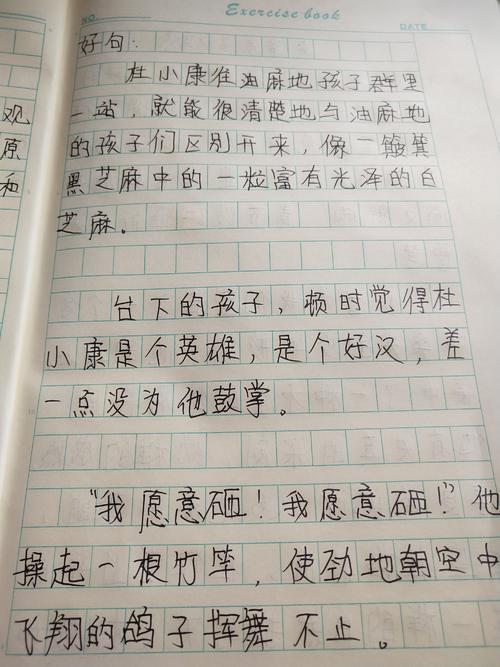 NO.
Exercise book
DATE
好句:
杜小康往油麻地孩子群里
一站,就能很清楚地与油麻地
的孩子们区别开来,像一簸箕
黑芝麻中的一粒富有光泽的白
芝麻。
台下的孩子,顿时觉得杜
小康是个英雄,是个好汉,差
一点没为他鼓掌。
“我愿意砸!我愿意砸!”他
操起一根竹竿,使劲地朝空中
飞翔的鸽子挥舞不止。
观
原
和